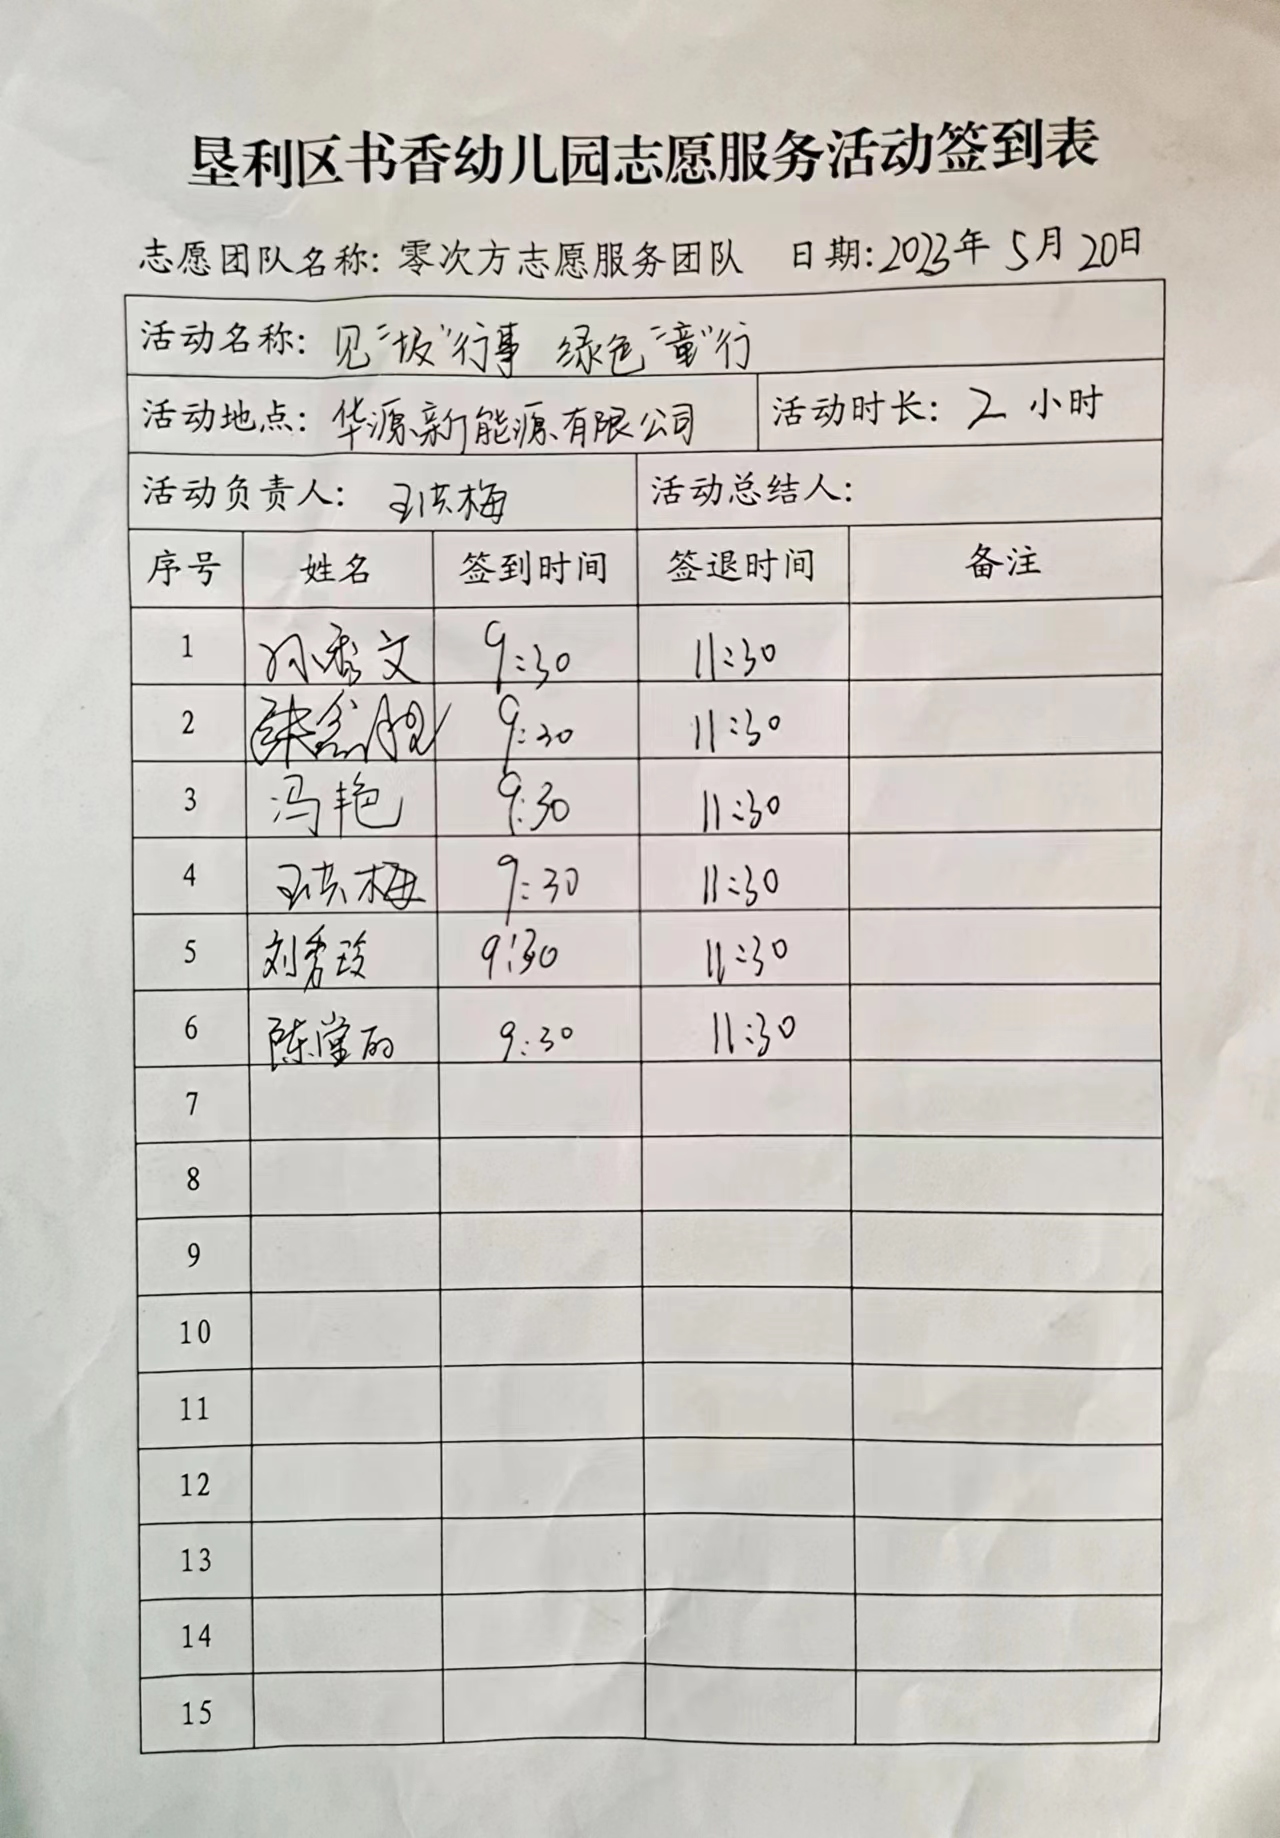 垦利区书香幼儿园志愿服务活动签到表
志愿团队名称: 零次方志愿服务团队 日期: 2023年 5月 20日
活动名称: 见“圾”行事 绿色“童”行
活动地点: 华源新能源有限公司 活动时长: 2 小时
活动负责人: 王洪梅 活动总结人:
序号 姓名 签到时间 签退时间 备注
1 孙秀文 9:30 11:30
2 9:30 11:30
3 冯艳 9:30 11:30
4 王洪梅 9:30 11:30
5 刘秀玲 9:30 11:30
6 陈 9:30 11:30
7
8
9
10
11
12
13
14
15